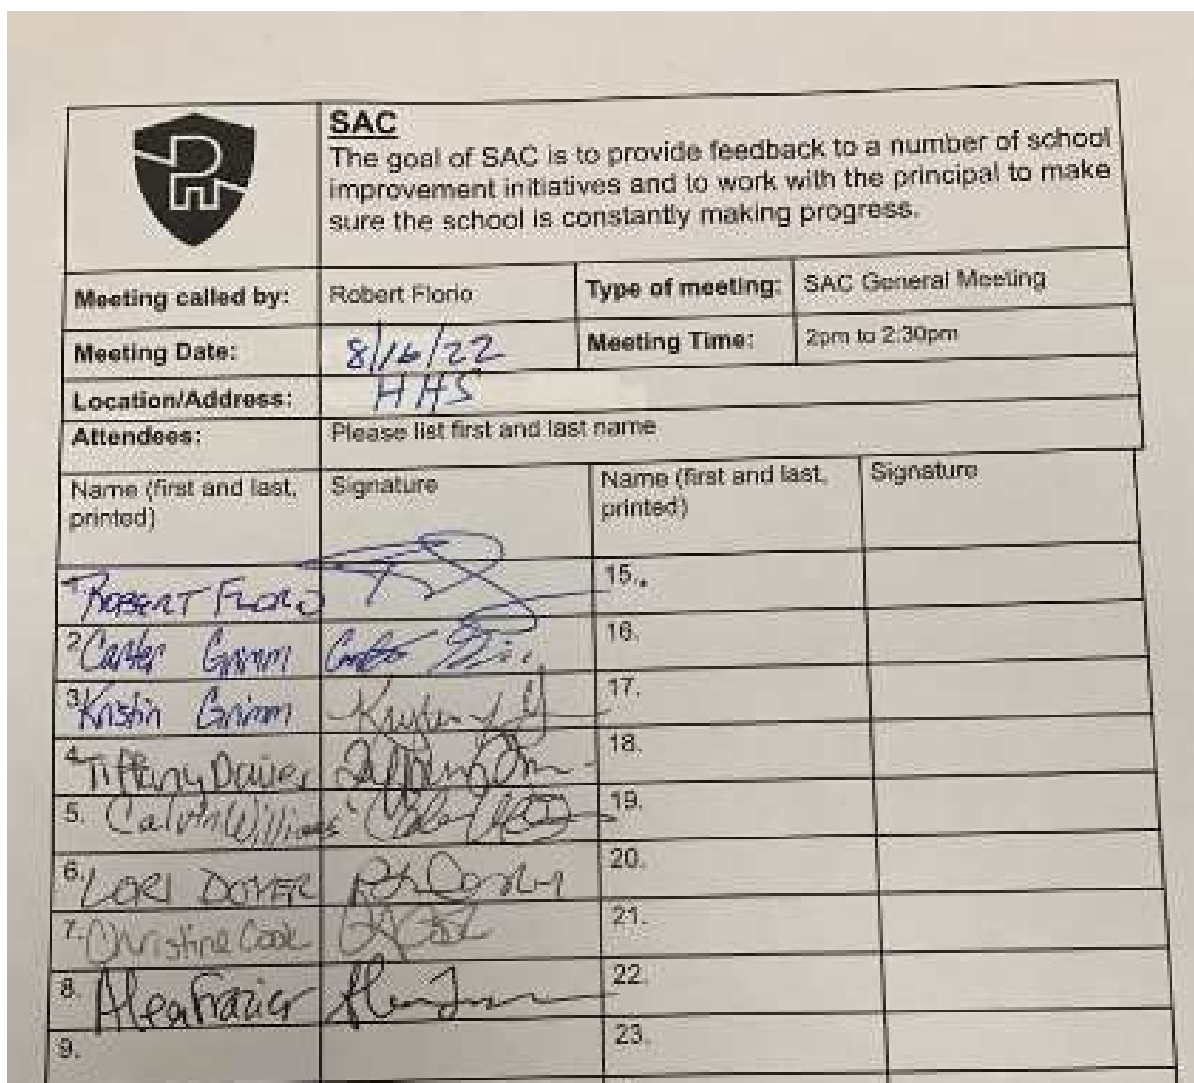 SAC
The goal of SAC is to provide feedback to a number of school
improvement initiatives and to work with the principal to make
sure the school is constantly making progress.
Meeting called by: Robert Florio Type of meeting: SAC General Meeting
Meeting Date: 8/16/22 Meeting Time: 2pm to 2:30pm
Location/Address: HHS
Attendees: Please list first and last name
Name (first and last, Signature Name (first and last, Signature
printed) printed)
1. ROBERT FLORIO 15.
2 Carter Grimm 16.
3. Kristin Grimm 17.
4. Tiffany 18.
5. Calvin Williams 19.
6. LORI 20.
7. Christine Cook 21.
8. Frazier 22.
9. 23.